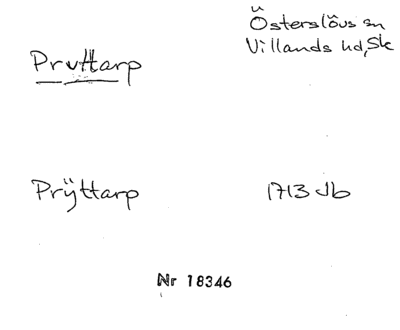 Österslövs sn
Villands hd, Sk
Pruttarp
Prÿttarp
1713 Jb
Nr 18346